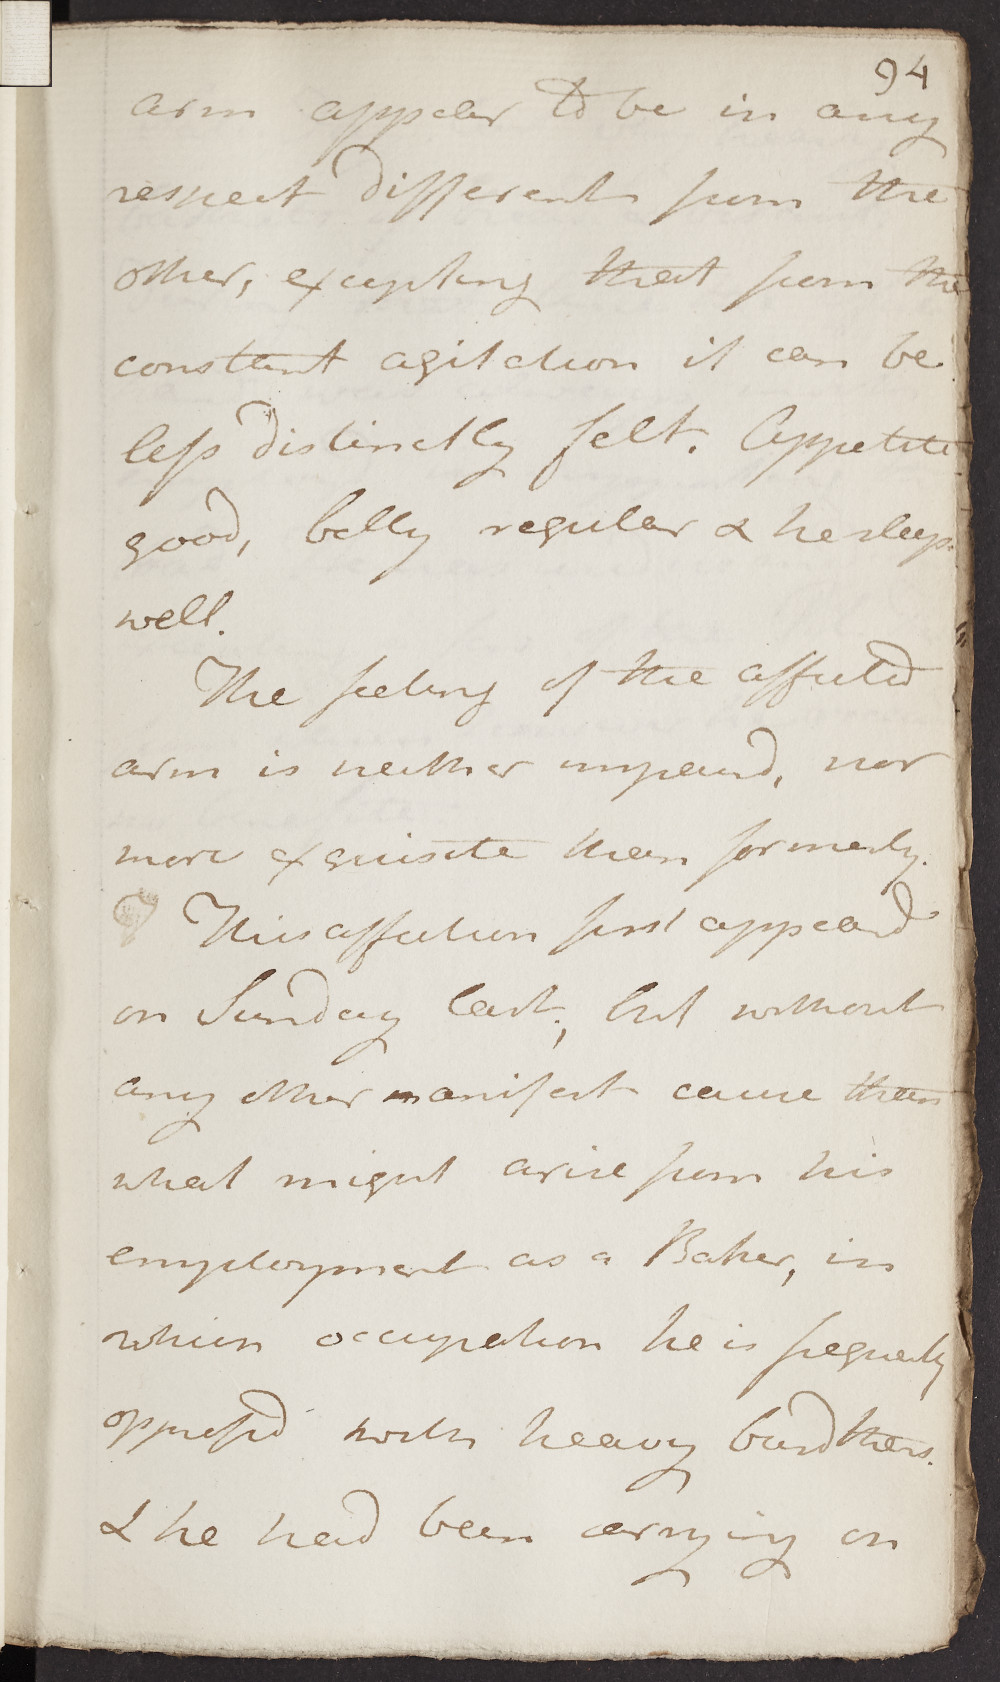 94
arm appear to be in any
respect different from the
other, excepting that from the
constant agitation it can be
less distinctly felt. Appetite
good, belly regular & he sleeps
well.
The feeling of the affected
arm is neither impaird, nor
more exquisite than formerly.
This affection first appeard
on Sunday last, but without
any other manifest cause than
what might arise from his
employment as a Baker, in
which occupation he is frequently
oppressd with heavy burdthens.
& he had been carrying on